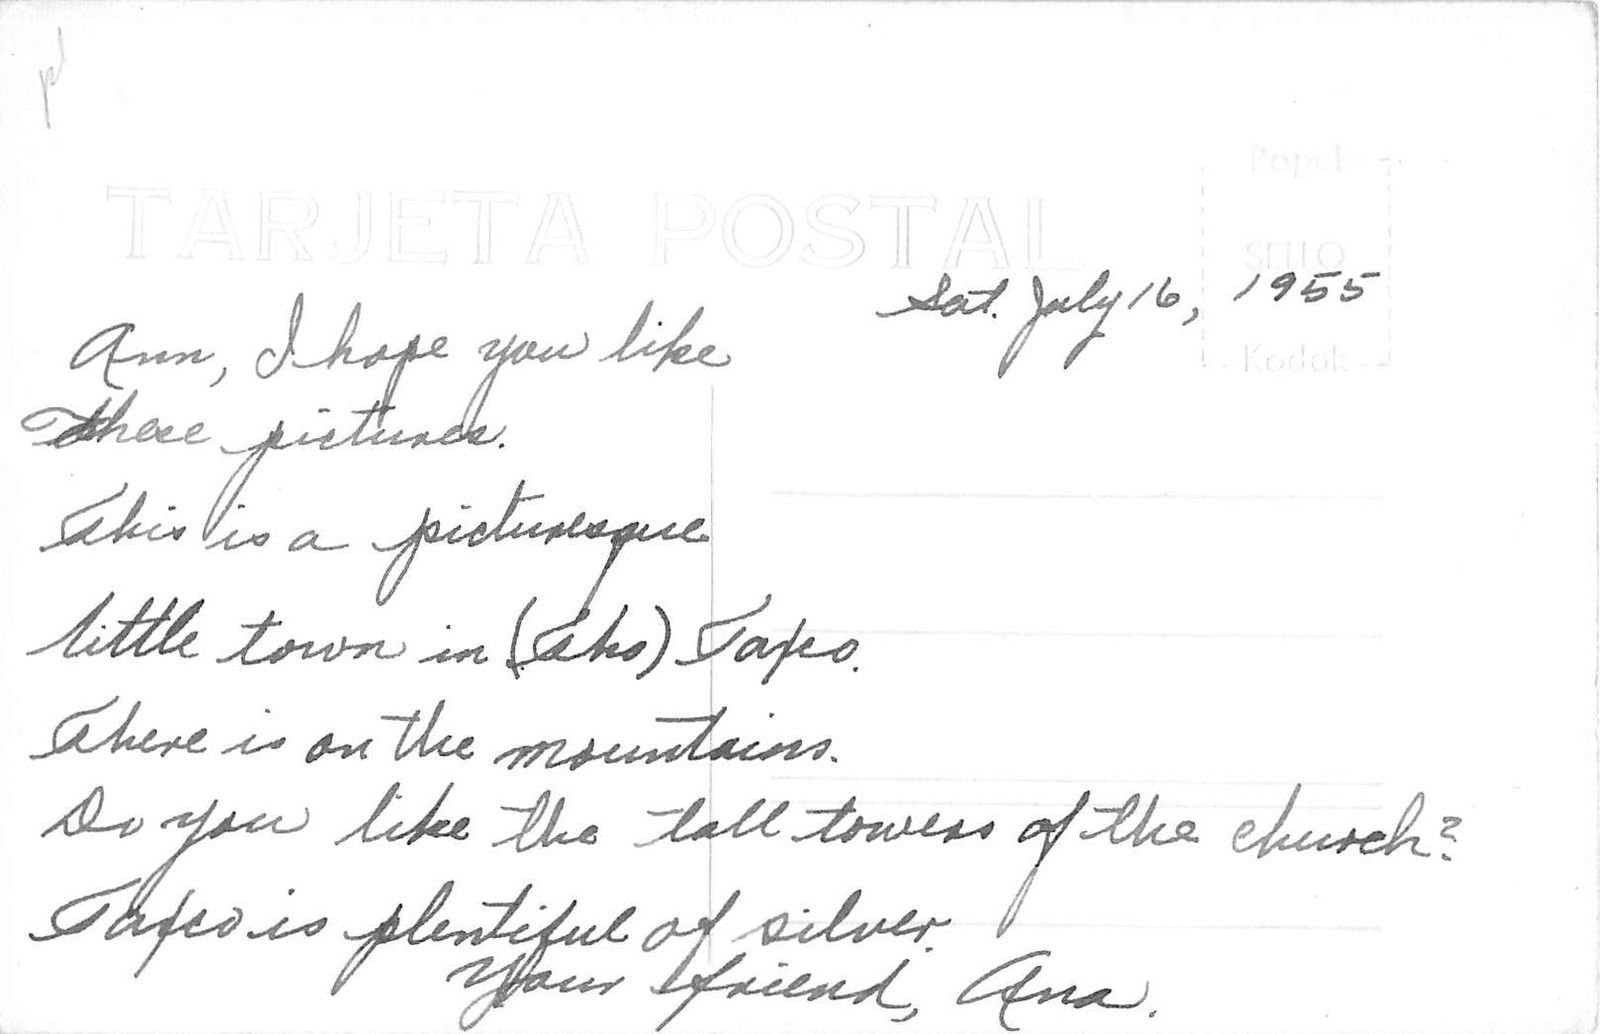 TARJETA POSTAL
Papel
SELLO
Kodak
Sat. July 16, 1955
Ann, I hope you like
these pictures.
This is a picturesque
little town in (The) Taxco.
There is on the mountains.
Do you like the tall towers of the church?
Taxco is plentiful of silver.
Your friend, Ana.